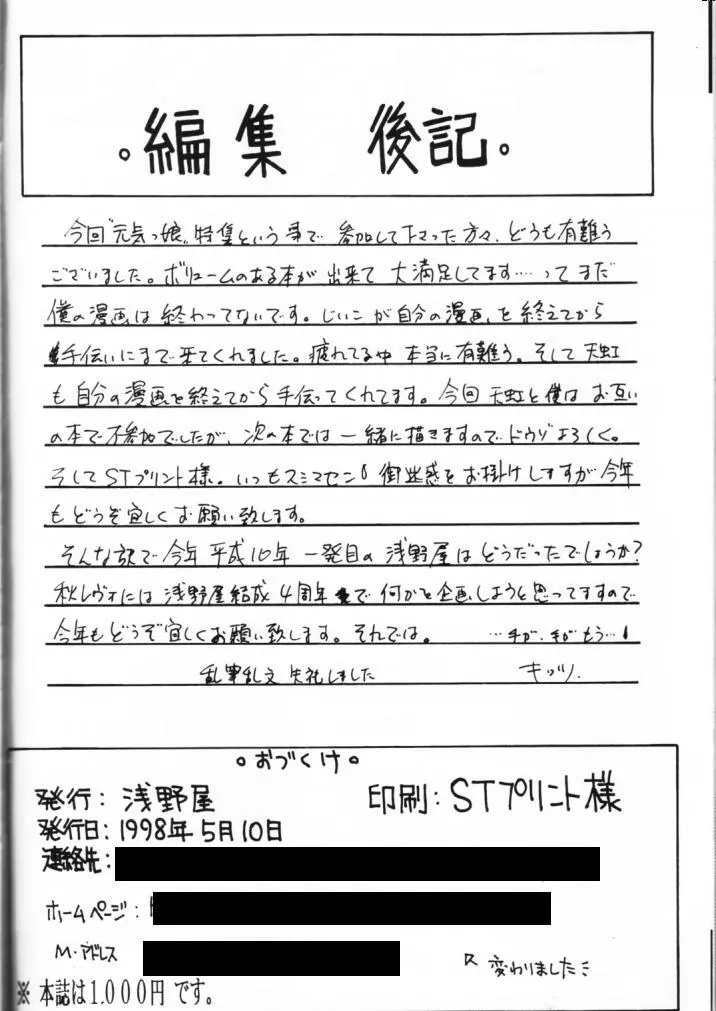 。編集 後記。
今回"元気っ娘"特集という事で 参加して下さった方々、どうも有難う
ございました。ボリュームのある本が出来て 大満足してます……ってまだ
僕の漫画は終わってないです。じいこが自分の漫画を終えてから
手伝いにまで来てくれました。疲れてる中本当に有難う。そして天虹
も自分の漫画を終えてから手伝ってくれてます。今回天虹と僕はお互い
の本で不参加でしたが、次の本では一緒に描きますのでドウゾよろしく。
そしてSTプリント様。いつもスミマセン!御迷惑をお掛けしますが今年
もどうぞ宜しくお願い致します。
そんな訳で今年平成10年一発目の浅野屋はどうだったでしょうか?
秋レヴォには浅野屋結成4周年で何かと企画しようと思ってますので
今年もどうぞ宜しくお願い致します。それでは。 …手が、手がもう…!
乱筆乱文失礼しました キッツ.
。おづくけ。
発行:浅野屋 印刷:STプリント様
発行日:1998年5月10日
連絡先:
ホームページ:
M・アドレス
変わりました
※ 本誌は1,000円です。